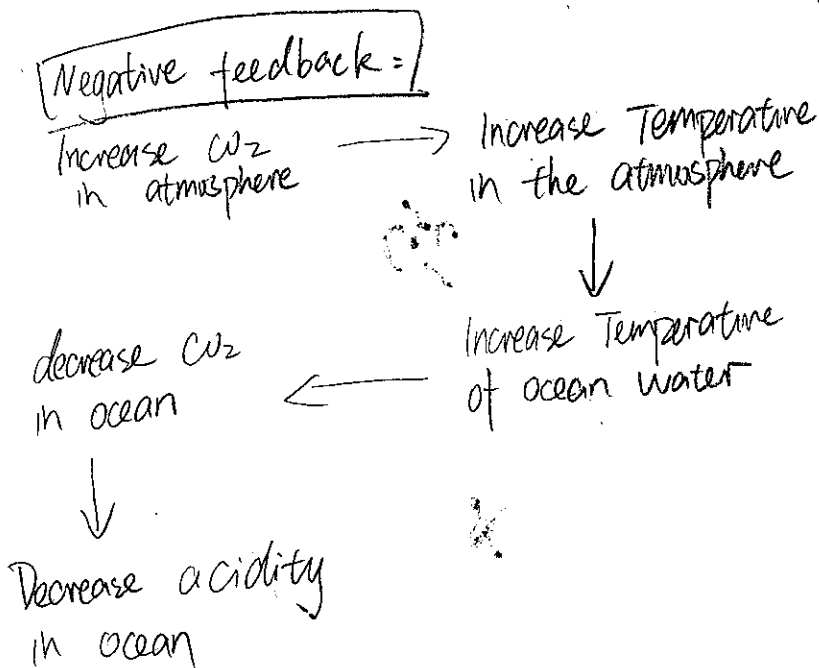 Negative feedback :
Increase CO2
in atmosphere
Increase Temperature
in the atmosphere
Increase Temperature
of ocean water
decrease CO2
in ocean
Decrease acidity
in ocean